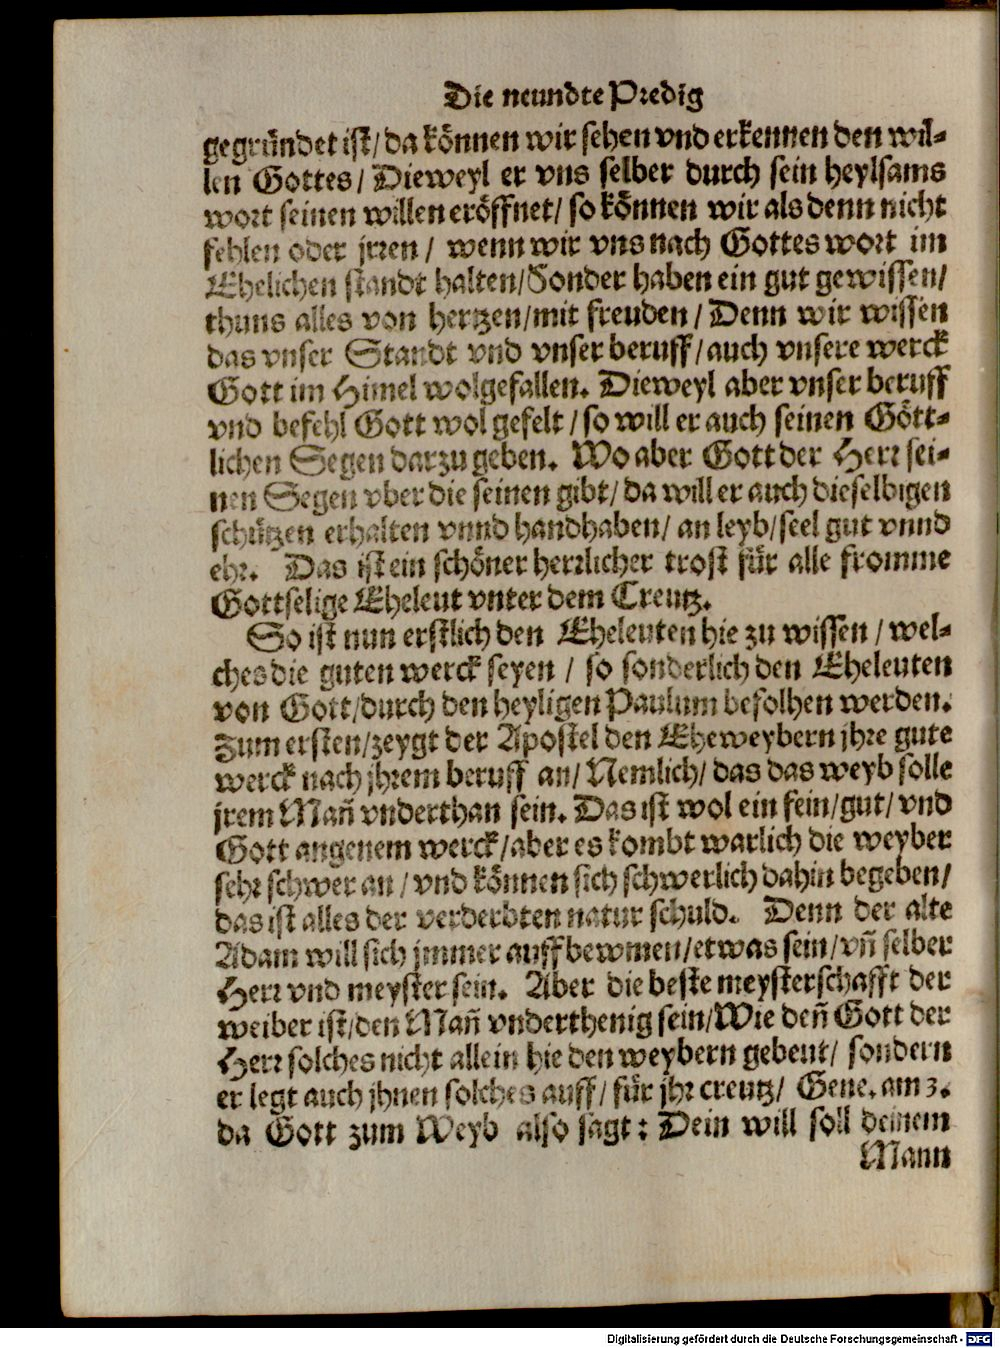 Die neundte Predig
gegründet ist/ da können wir sehen vnd erkennen den wil-
len Gottes/ Dieweyl er vns selber durch sein heylsams
wort seinen willen eröffnet/ so können wir als denn nicht
fehlen oder jrren/ wenn wir vns nach Gottes wort im
Ehelichen standt halten/ Sonder haben ein gut gewissen/
thuns alles von hertzen/ mit freuden/ Denn wir wissen
das vnser Standt vnd vnser beruff/ auch vnsere werck
Gott im Himel wolgefallen. Dieweyl aber vnser beruff
vnd befehl Gott wol gefelt/ so will er auch seinen Gött-
lichen Segen darzu geben. Wo aber Gott der Herr sei-
nen Segen vber die seinen gibt/ da will er auch dieselbigen
schützen erhalten vnnd handhaben/ an leyb/ seel gut vnnd
ehr. Das ist ein schöner herrlicher trost für alle fromme
Gottselige Eheleut vnter dem Creutz.
So ist nun erstlich den Eheleuten hie zu wissen/ wel-
ches die guten werck seyen/ so sonderlich den Eheleuten
von Gott/ durch den heyligen Paulum befolhen werden.
Zum ersten/ zeygt der Apostel den Eheweybern jhre gute
werck nach jhrem beruff an/ Nemlich/ das das weyb solle
jrem Man̄ vnderthan sein. Das ist wol ein fein/ gut/ vnd
Gott angenem werck/ aber es kombt warlich die weyber
sehr schwer an/ vnd können sich schwerlich dahin begeben/
das ist alles der verderbten natur schuld. Denn der alte
Adam will sich jmmer auffbewmen/ etwas sein/ vn̄ selber
Herr vnd meyster sein. Aber die beste meysterschafft der
weiber ist/ den Man̄ vnderthenig sein/ Wie den̄ Gott der
Herr solches nicht allein hie den weybern gebeut/ sondern
er legt auch jhnen solches auff/ für jhr creutz/ Gene. am 3.
da Gott zum Weyb also sagt: Dein will soll deinem
Mann
Digitalisierung gefördert durch die Deutsche Forschungsgemeinschaft - DFG